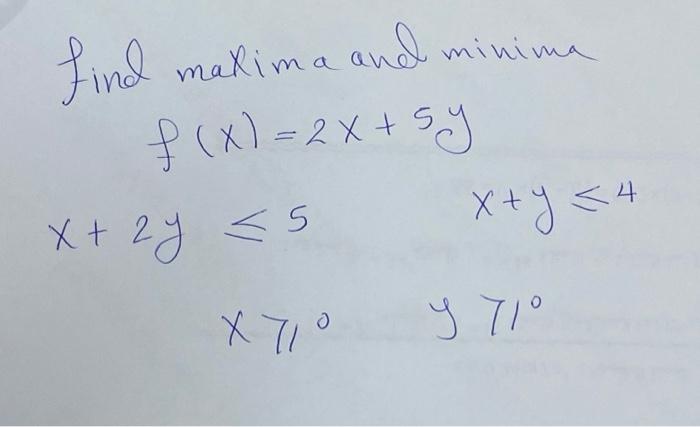 find maxima and minima
f(x) = 2x + 5y
x + 2y ≤ 5 x + y ≤ 4
x ≥ 0 y ≥ 0